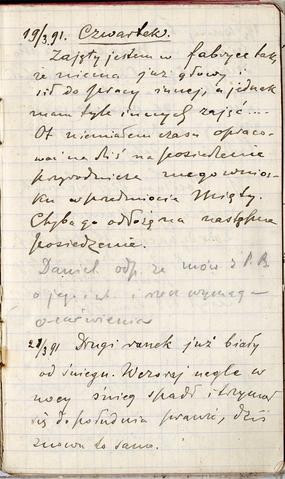 19/3.91. Czwartek.
Zajęty jestem w fabryce tak,
że niema już głowy i
sił do pracy innej, a jednak
mam tyle innych zajęć....
Ot niemiałem czasu opraco-
wać na dziś na posiedzenie
przyrodnicze mego wnios-
ku w przedmiocie Mięty.
Chyba go odłożę na następne
posiedzenie.
Daniel odp. że mów z P. B.
o jego i
28/3 91 Drugi ranek już biały
od śniegu. Wczoraj nagle w
nocy śnieg spadł i trzymał
się do południa prawie, dziś
znowu to samo.